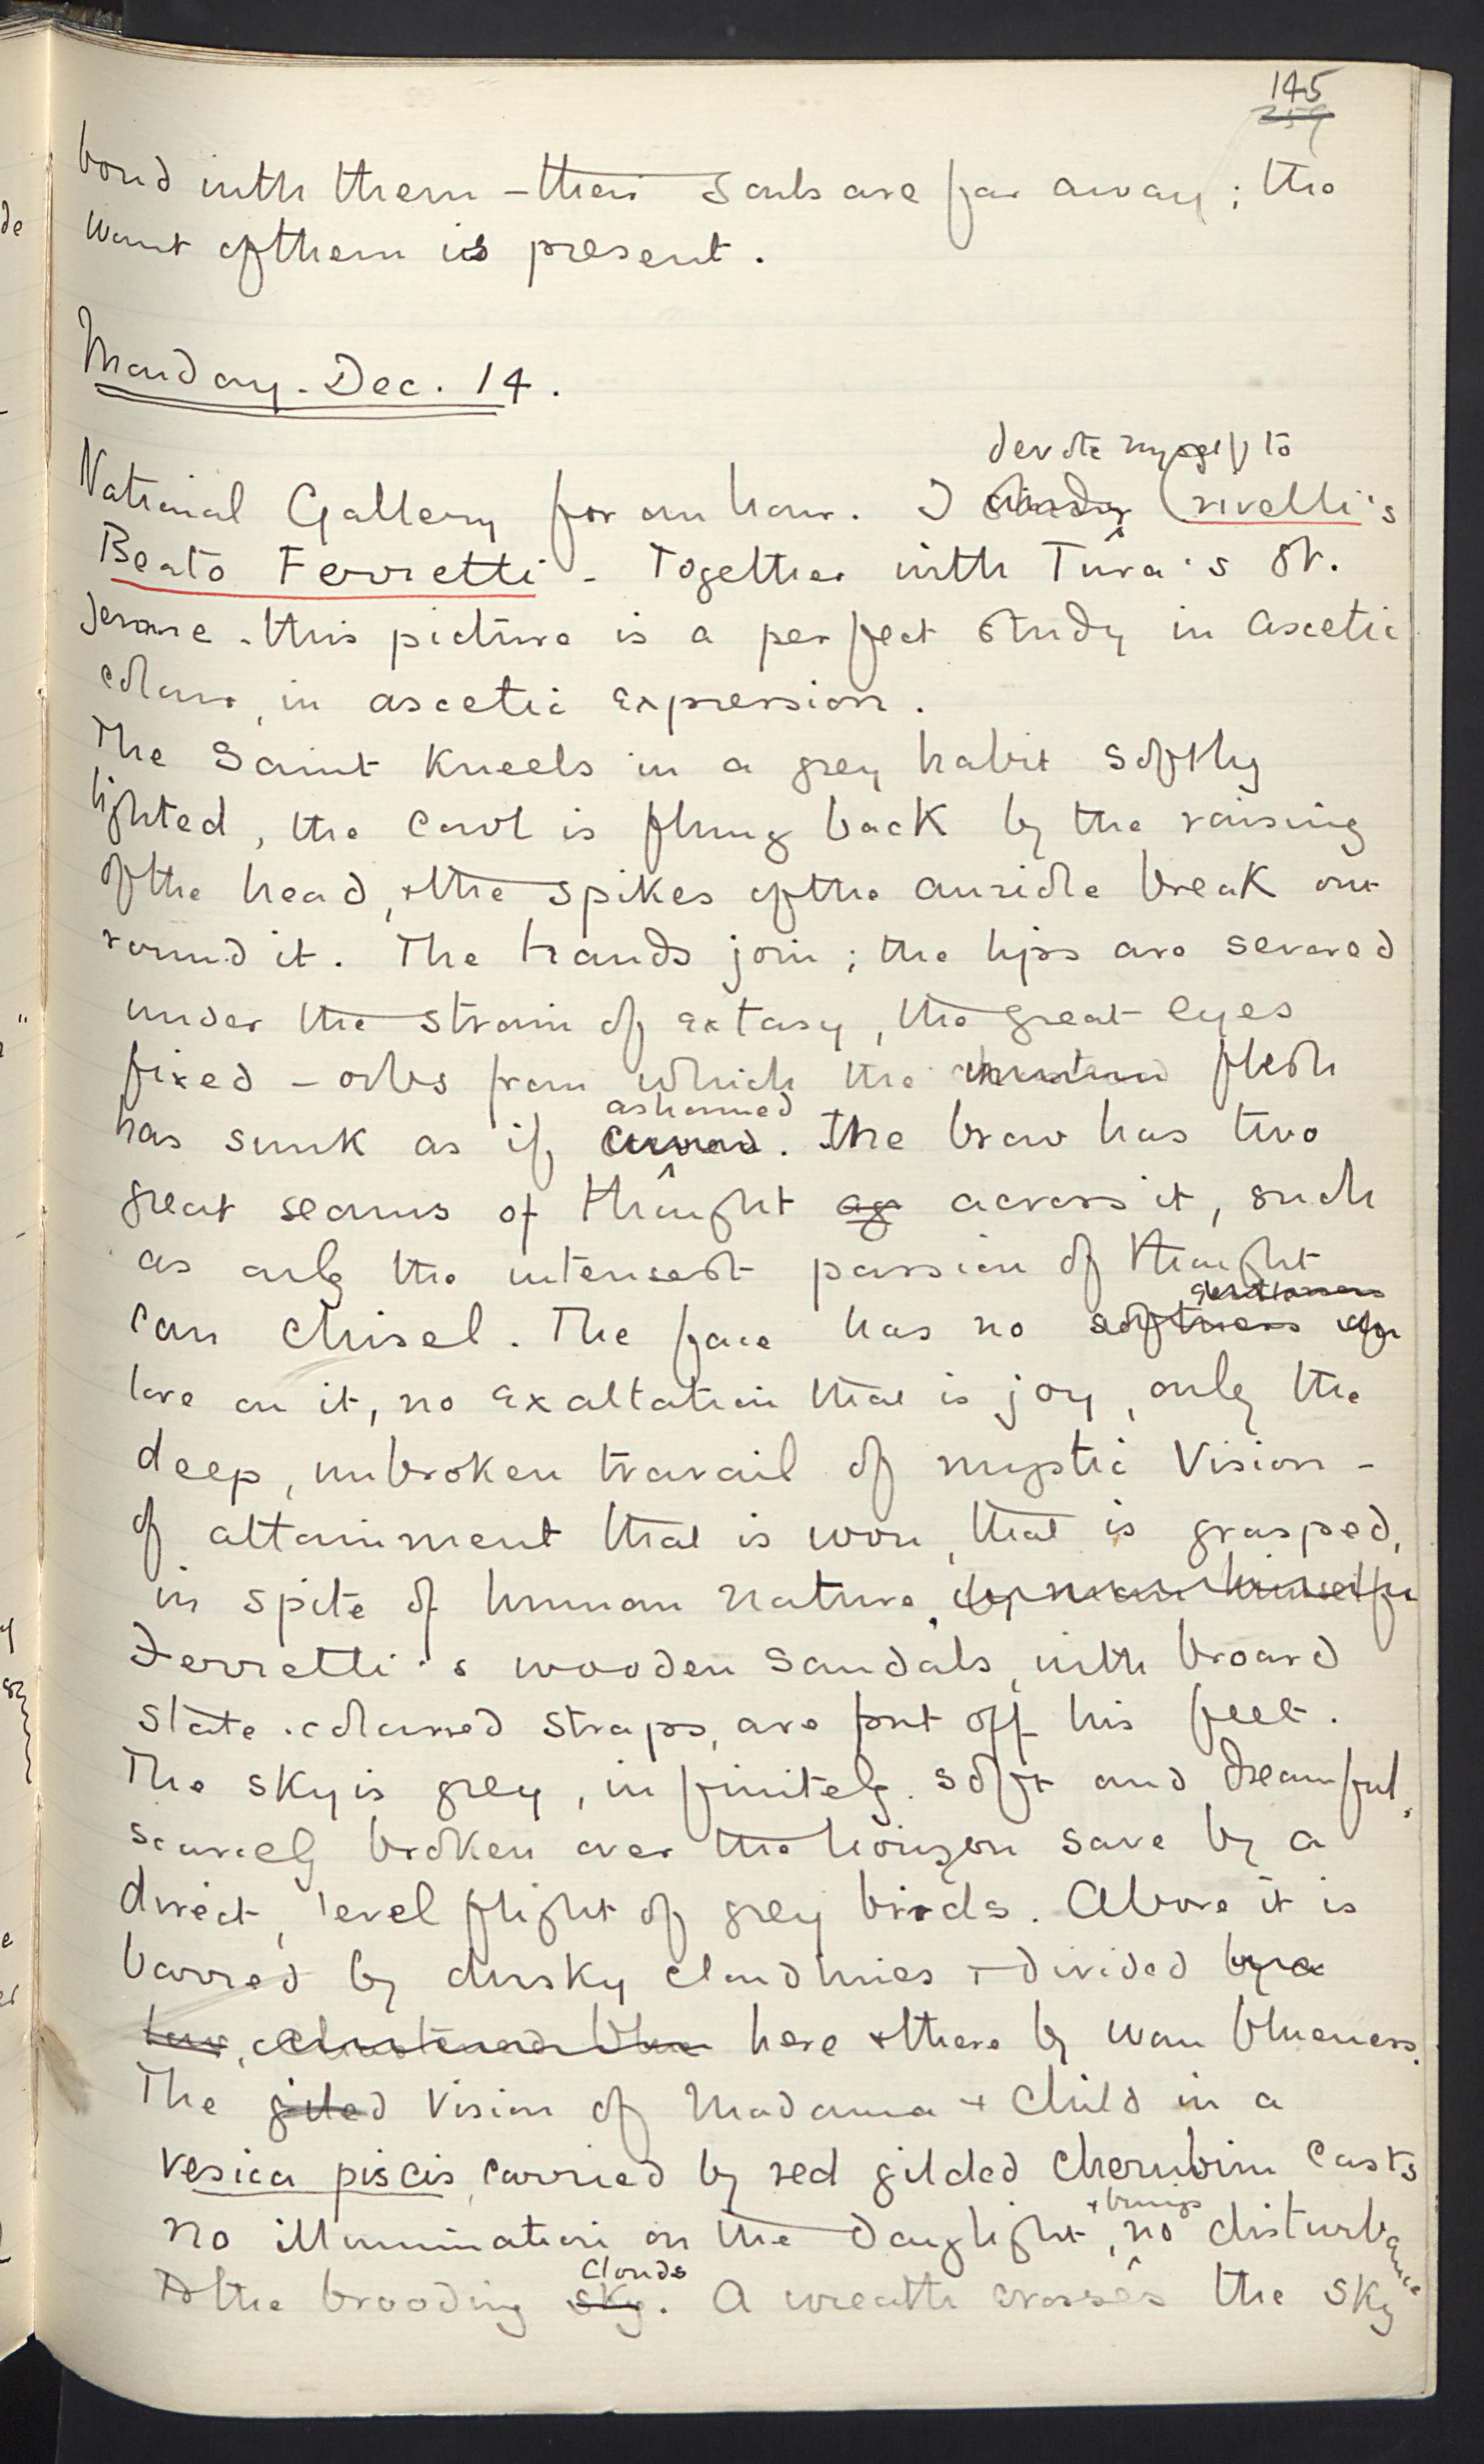 145
259
bond with them – their souls are far away; the
want of them is present.
Monday. Dec. 14.
devote myself to
National Gallery for an hour. I study Crivelli's
Beato Ferretti – Together with Tura's St.
Jerome – this picture is a perfect study in ascetic
colour, in ascetic expression.
The Saint kneels in a grey habit softly
lighted, the cowl is flung back by the raising
of the head, + the spikes of the auriole break out
round it. The hands join; the lips are severed
under the strain of extasy, the great eyes
fixed – orbs from which the flesh
ashamed
has sunk as if . The brow has two
great seams of thought ag across it, such
as only the intensest passion of thought
gentleness
can chisel. The face has no softness of
love on it, no exaltation that is joy, only the
deep, unbroken travail of mystic Vision –
of attainment that is won, that is grasped,
in spite of human nature, by man himself
Ferretti's wooden sandals, with broard
slate-coloured straps, are put off his feet.
The sky is grey, infinitely soft and dreamful,
scarcely broken over the horizon save by a
direct, level flight of grey birds. Above it is
barred by dusky cloudlines + divided by a
here + there by wan blueness.
The gilded Vision of Madonna + Child in a
vesica piscis, carried by red gilded cherubim casts
+ brings
no illumination on the daylight, no disturbance
clouds
to the brooding sky. A wreath crosses the sky